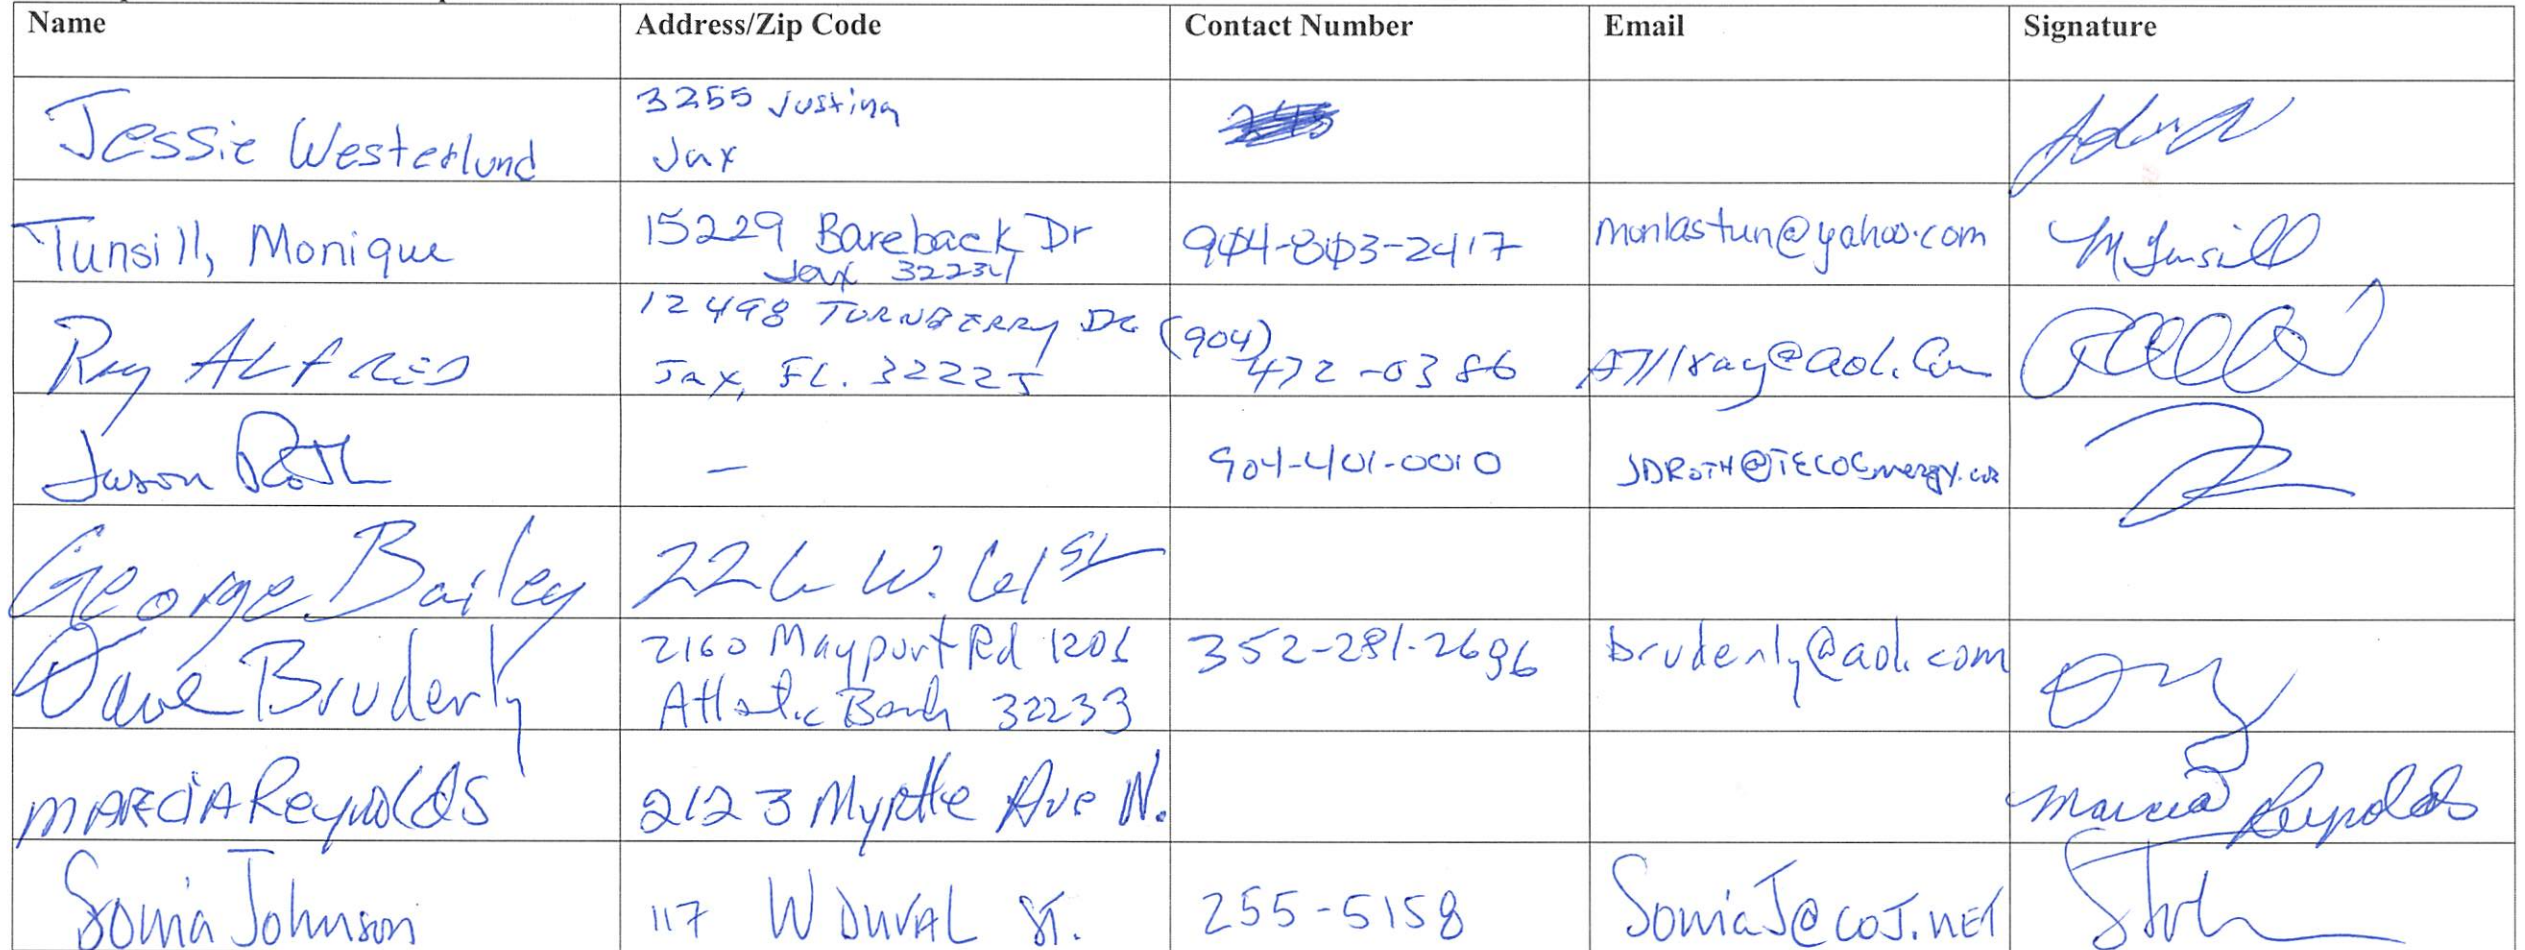 Name Address/Zip Code Contact Number Email Signature
Jessie Westerlund 3255 Justina
Jax
Tunsill, Monique 15229 Bareback Dr 904-803-2417 monlastun@yahoo.com M Tunsill
Jax 32234
Ray ALFRED 12498 TURNBERRY DR (904)
Jax, FL. 32225 472-0386 @aol.Com
Jason Roth — 904-401-0010 JDROTH@TECOEnergy.com
George Bailey 226 W. 61st
Dave Bruderly 2160 Mayport Rd 1201 352-281-2696 bruderly@aol.com
Atlantic Beach 32233
MARCIA Reynolds 2123 Myrtle Ave N. Marcia Reynolds
Sonia Johnson 117 W DUVAL ST. 255-5158 SoniaJ@COJ.NET